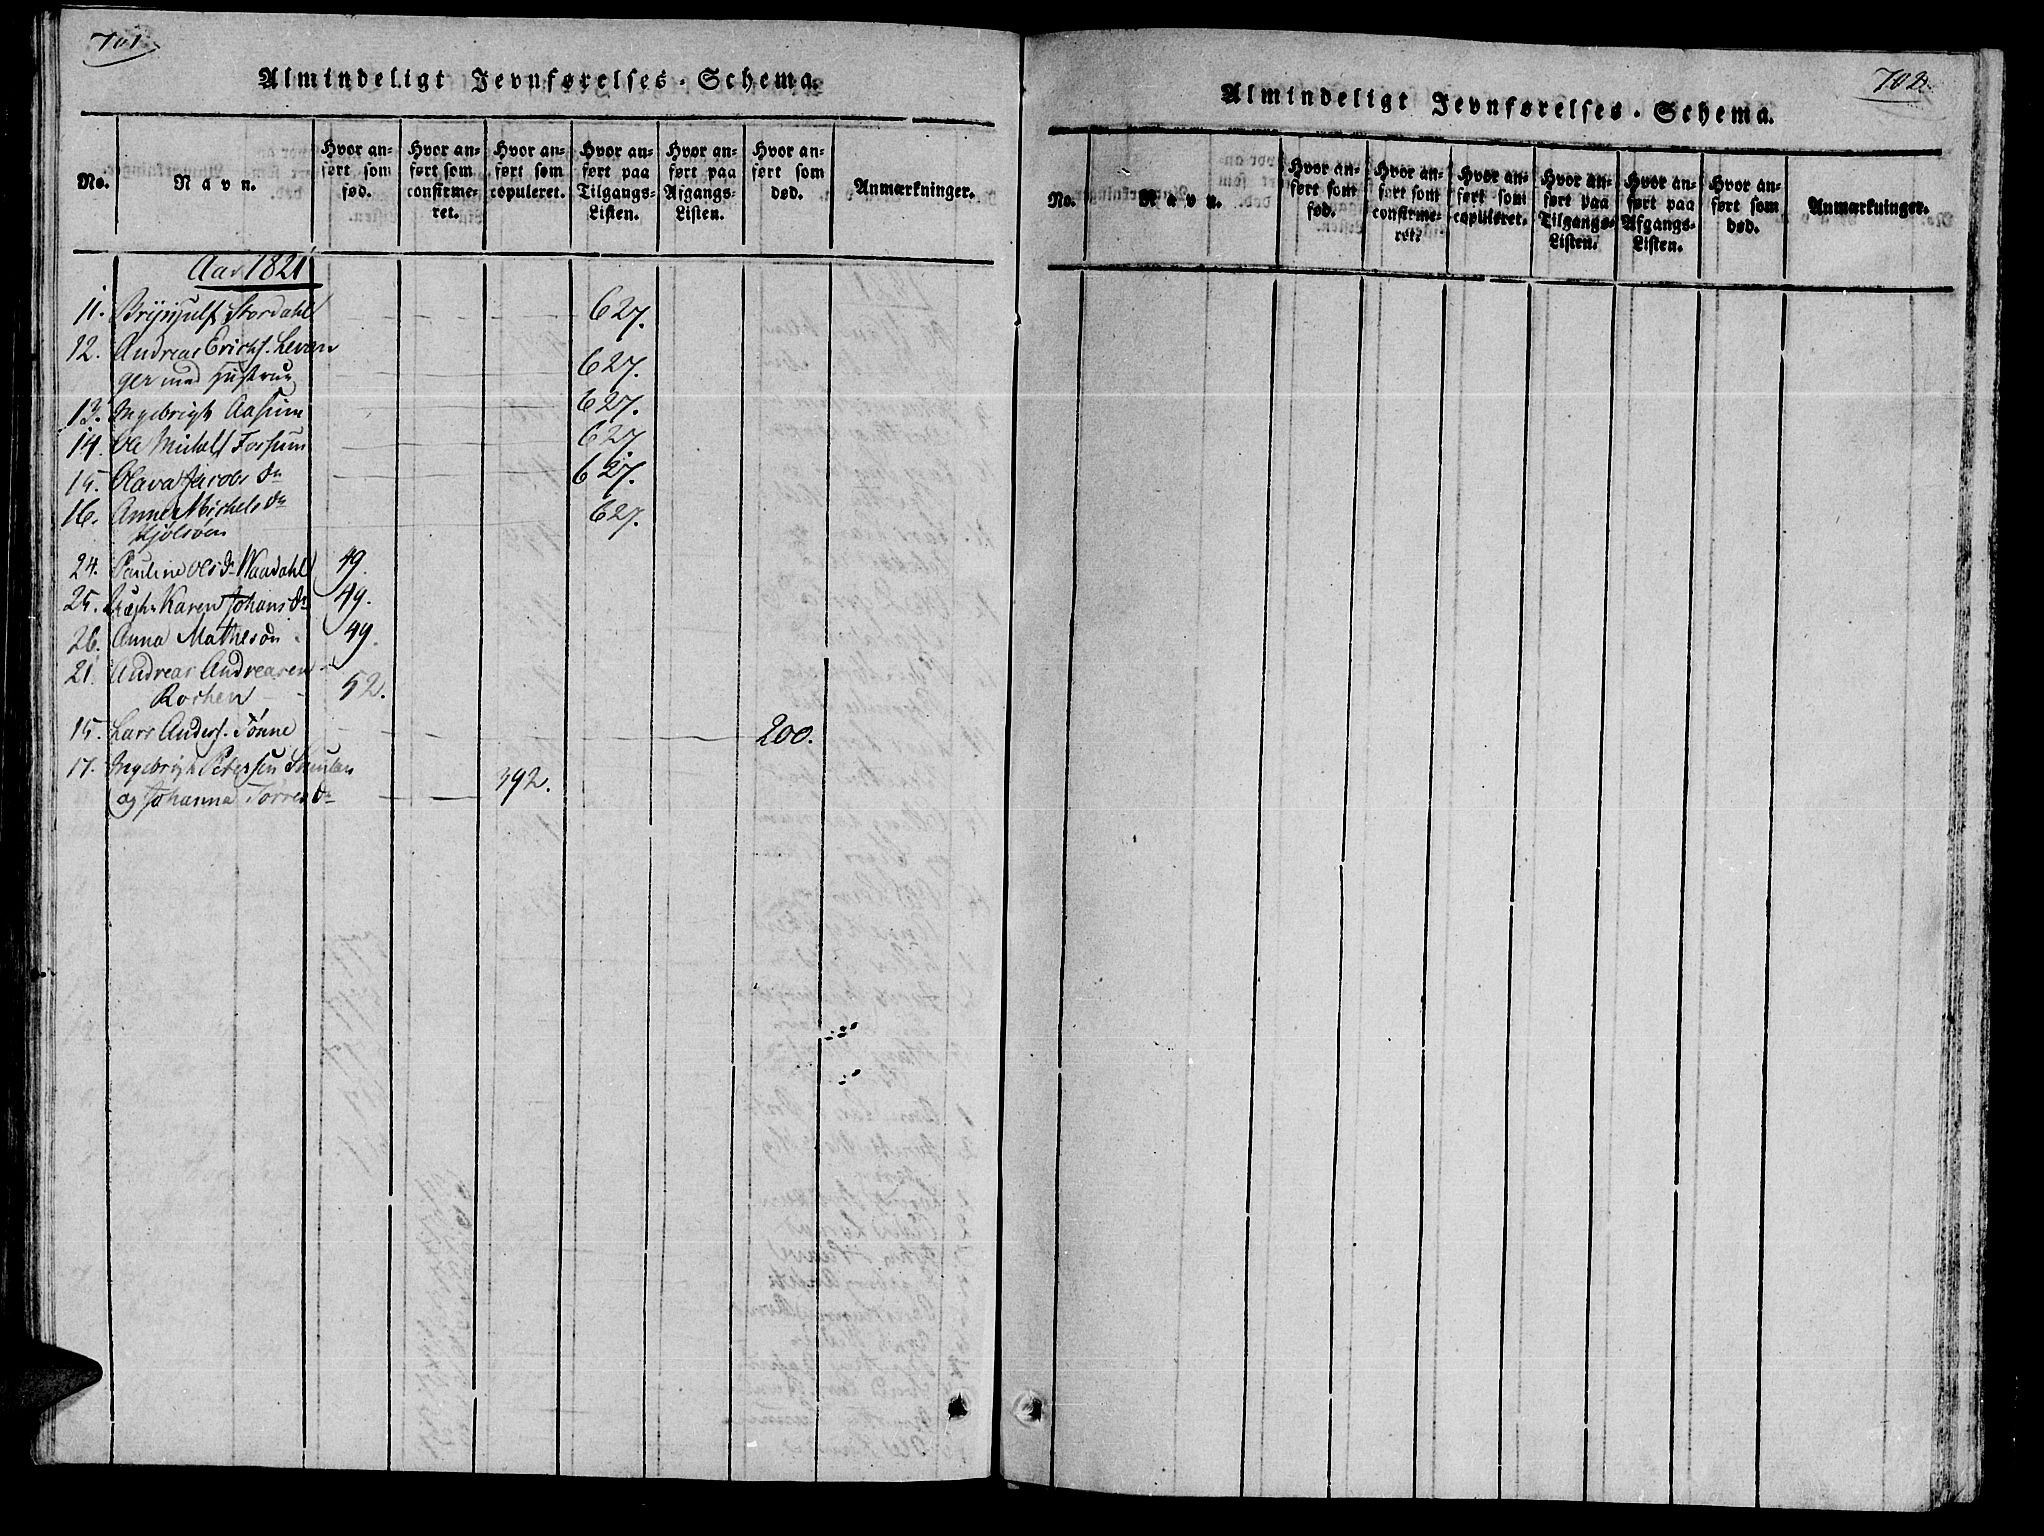 701
Almindeligt Jevnførelses-Schema.
No. Navn. Hvor anført som fød. Hvor anført som confirmeret. Hvor anført som copuleret. Hvor anført paa Tilgangs-Listen. Hvor anført paa Afgangs-Listen. Hvor anført som død. Anmærkninger.
Aar 1821
11. Brynjulf Stordahl 627.
12. Andreas Erichs. Leven
ger med Hustrue 627.
13. Ingebrigt Aasum 627.
14. Ole Michels Forsum 627.
15. Olava Jacobs dr 627.
16. Anne Michels dr 627.
Kjølsøen
24. Pauline Ols dr Waadahl 49.
25. Karen Johans dr 49.
26. Anna Mathesøn 49.
21. Andreas Andreasen
Rochen 52.
15. Lars Anders. Tønne 200.
17. Ingebrigt Petersen
og Johanna Torres dr 392.
702
Almindeligt Jevnførelses-Schema.
No. Navn. Hvor anført som fød. Hvor anført som confirmeret. Hvor anført som copuleret. Hvor anført paa Tilgangs-Listen. Hvor anført paa Afgangs-Listen. Hvor anført som død. Anmærkninger.